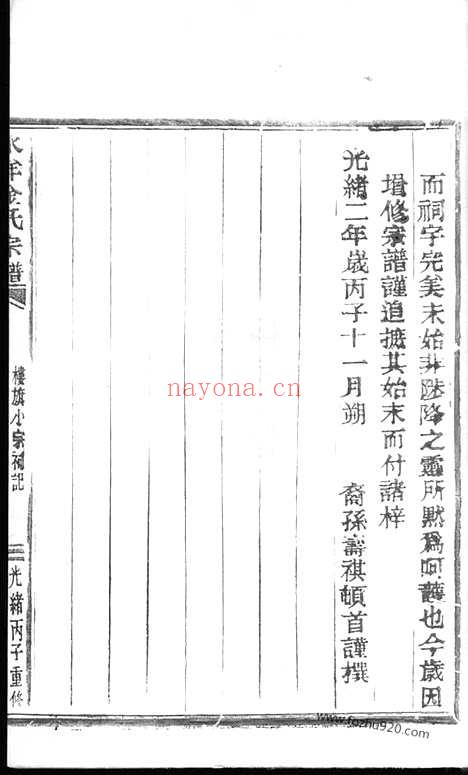 而祠宇完美未始非陟降之靈所默為呵護也今歲因
增修宗譜謹追摭其始末而付諸梓
光緒二年歲丙子十一月朔 裔孫壽祺頓首謹撰
金氏宗譜
樓旗小宗祠記
二
光緒丙子重修
nayona.cn
www.fozhu920.com